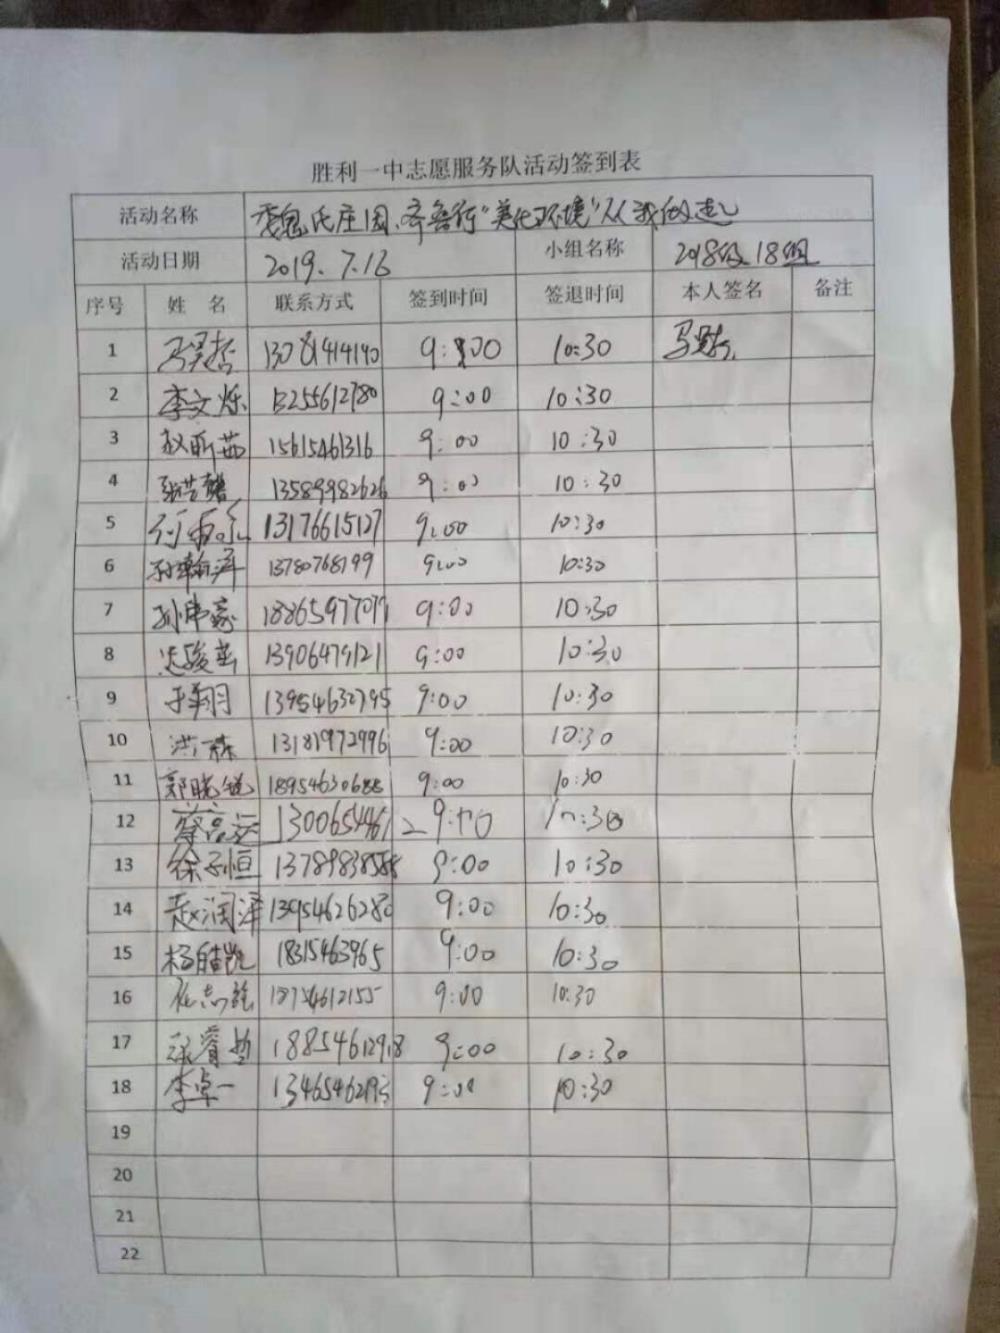 胜利一中志愿服务队活动签到表
活动名称 魏氏庄园、齐鲁行"美化环境"从我做起
活动日期 2019.7.16 小组名称 2018级18组
序号 姓名 联系方式 签到时间 签退时间 本人签名 备注
1 9:00 10:30
2 李文烁 9:00 10:30
3 赵昕茹 15615461316 9:00 10:30
4 13589982626 9:00 10:30
5 13176615127 9:00 10:30
6 孙瀚泽 13780768199 9:00 10:30
7 9:00 10:30
8 13906479121 9:00 10:30
9 于翔 13954632795 9:00 10:30
10 洪森 13181972996 9:00 10:30
11 18954630688 9:00 10:30
12 13006544612 9:00 10:30
13 徐子恒 13789838588 9:00 10:30
14 赵润泽 13954626280 9:00 10:30
15 杨皓凯 18315463965 9:00 10:30
16 9:00 10:30
17 18854612918 9:00 10:30
18 李卓一 9:00 10:30
19
20
21
22